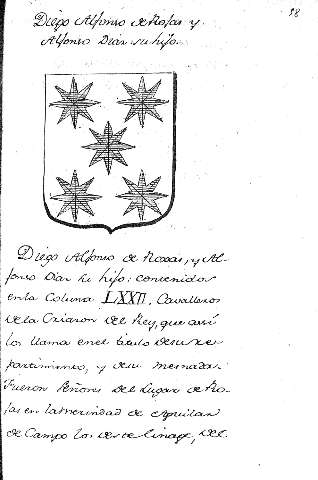 18
Diego Alfonso de Rojas y
Alfonso Diaz su hijo.
Diego Alfonso de Roxas, y Al-
fonso Diaz su hijo: contenidos
en la Coluna LXXII, Cavalleros
de la Criazon del Rey, que assi
los llama en el titulo de su re-
partimiento, y de su mesnada.
Fueron Señores del Lugar de Ro-
jas en la Merindad de Aguilar
de Campo los de este linage, del